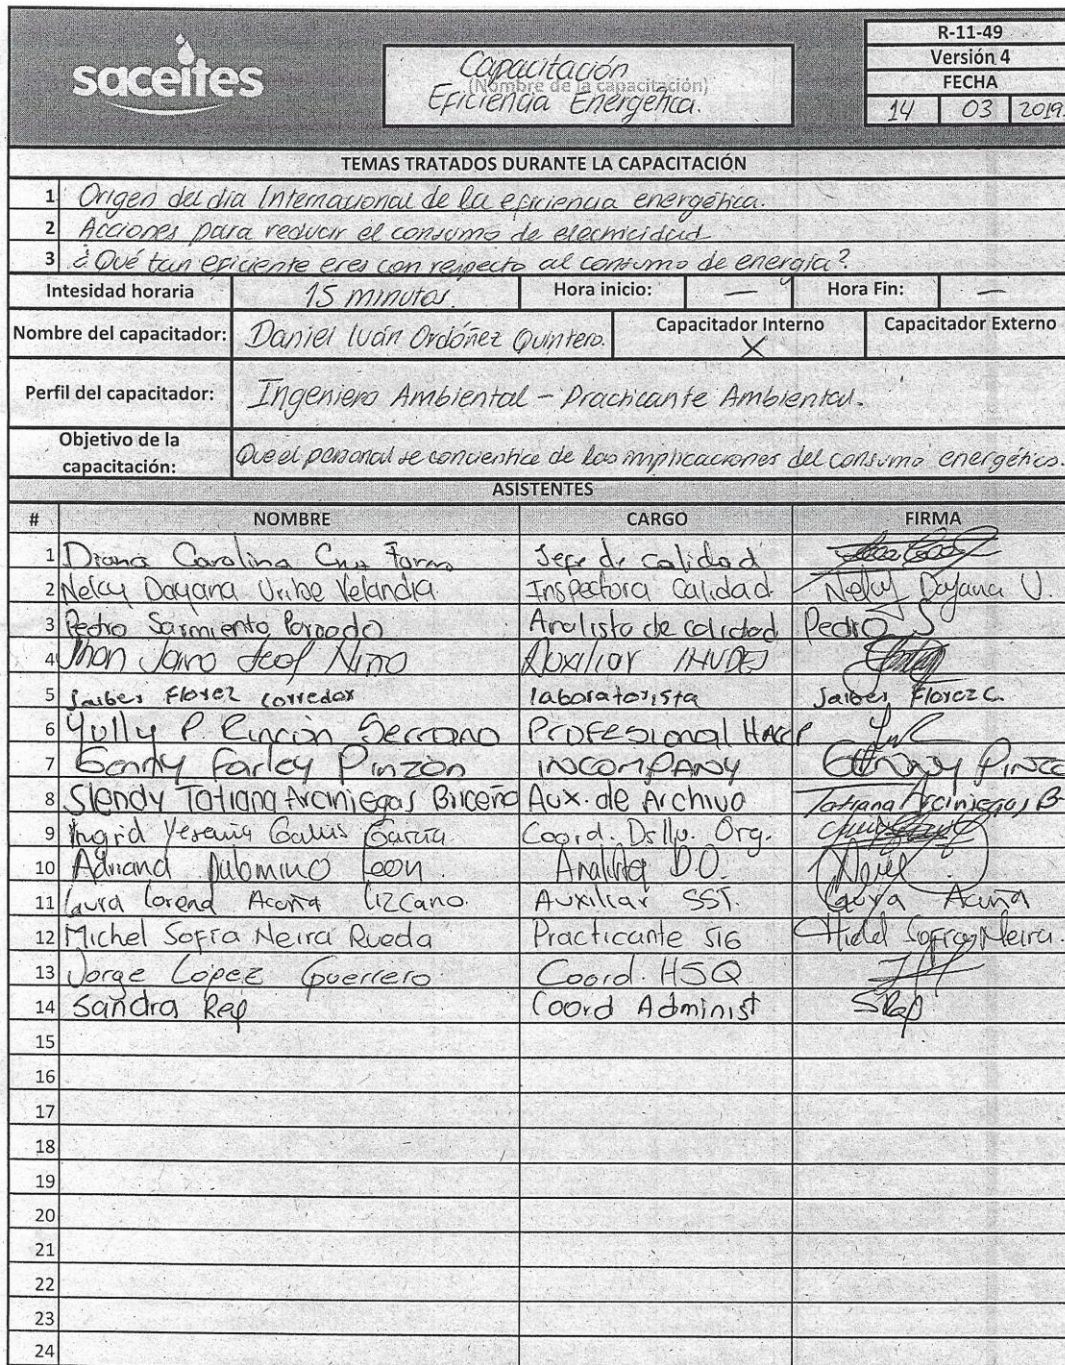 saceites
Capacitación
(Nombre de la capacitación)
Eficiencia Energética.
R-11-49
Versión 4
FECHA
14 03 2019.
TEMAS TRATADOS DURANTE LA CAPACITACIÓN
1 Origen del día Internacional de la eficiencia energética.
2 Acciones para reducir el consumo de electricidad
3 ¿Qué tan eficiente eres con respecto al consumo de energía?
Intesidad horaria 15 minutos. Hora inicio: — Hora Fin: —
Nombre del capacitador: Daniel Iván Ordóñez Quintero. Capacitador Interno X Capacitador Externo
Perfil del capacitador: Ingeniero Ambiental - Practicante Ambiental.
Objetivo de la capacitación: Que el personal se concientice de las implicaciones del consumo energético.
ASISTENTES
# NOMBRE CARGO FIRMA
1 Diana Carolina Cruz Jefe de calidad
2 Nelcy Dayana Uribe Velandia. Inspectora Calidad Nelcy Dayana U.
3 Pedro Sarmiento Analista de calidad Pedro S
4 Jhon Jairo Niño Auxiliar
5 Jaiber Florez corredor laboratorista Jaiber Florez c.
6 Yully P. Rincón Serrano Profesional HACCP
7 Genny Farley Pinzón INCOMPANY
8 Slendy Tatiana Arciniegas Briceño Aux. de Archivo Tatiana Arciniegas B.
9 Ingrid Yesenia García. Coord. Dsllo. Org.
10 Adriana Leon Analista D.O.
11 Laura Lorena Acuña Lizcano. Auxiliar SST. Laura Acuña
12 Michel Sofía Neira Rueda Practicante SIG Michel Sofía Neira.
13 Jorge López Guerrero Coord. HSQ
14 Sandra Coord Administ
15
16
17
18
19
20
21
22
23
24